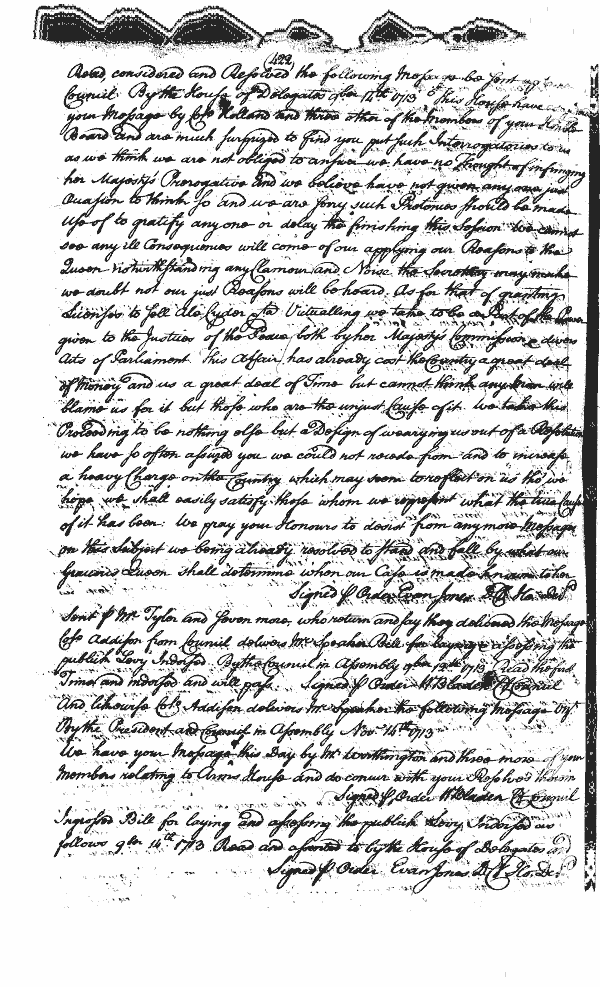 422
Read, considered and Resolved the following Message be sent
Council. By the House of Delegates 9ber 14th 1713 This House have
your Message by Colo Holland and three other of the Members of your
Board and are much surprized to find you put such Interrogatories to us
as we think we are not obliged to answer we have no thought of infringing
her Majestys Prerogative and we believe have not given any one just
Occasion to think so and we are sorry such Pretences should be made
Use of to gratify any one or delay the finishing this Session we cannot
see any ill Consequences will come of our applying our Reasons to the
Queen notwithstanding any Clamour and Noise the Secretary may make
we doubt not our just Reasons will be heard. As for that of granting
Licenses to sell Ale Cyder &ta Victualling we take to be a Part of the Power
given to the Justices of the Peace both by her Majestys Commission & divers
Acts of Parliament This Affair has already cost the Country a great deal
of Money and us a great deal of Time but cannot think any Man will
blame us for it but those who are the unjust Cause of it. We take this
Proceeding to be nothing else but a Design of wearying us out of a Resolution
we have so often assured you we could not recede from and to increase
a heavy Charge on the Country which may seem to reflect on us tho' we
hope we shall easily satisfy those whom we represent what the true Cause
of it has been. We pray your Honours to desist from any more Messages
on this Subject we being already resolved to stand and fall by what our
Gracious Queen shall determine when our Case is made known to her
Signed p Order Evan Jones Cl Ho. Del
Sent p Mr Tyler and seven more, who return and say they delivered the Message
Colo Addison from Council delivers Mr Speaker Bill for laying & assessing the
publick Levy Indorsed. By the Council in Assembly 9ber 13th 1713 Read the
Time and indorsed and will pass. Signed p Order W Bladen Cl Council
And likewise Colo Addison delivers Mr Speaker the following Message
By the President and Council in Assembly Nov. 14th 1713
We have your Message this Day by Mr Worthington and three more of your
Members relating to Arms House and do concur with your Resolves therein
Signed p Order W Bladen Cl Council
Ingrossed Bill for laying and assessing the publick Levy Indorsed as
follows 9ber 14th 1713 Read and assented to by the House of Delegates
Signed p Order Evan Jones Cl Ho. Del